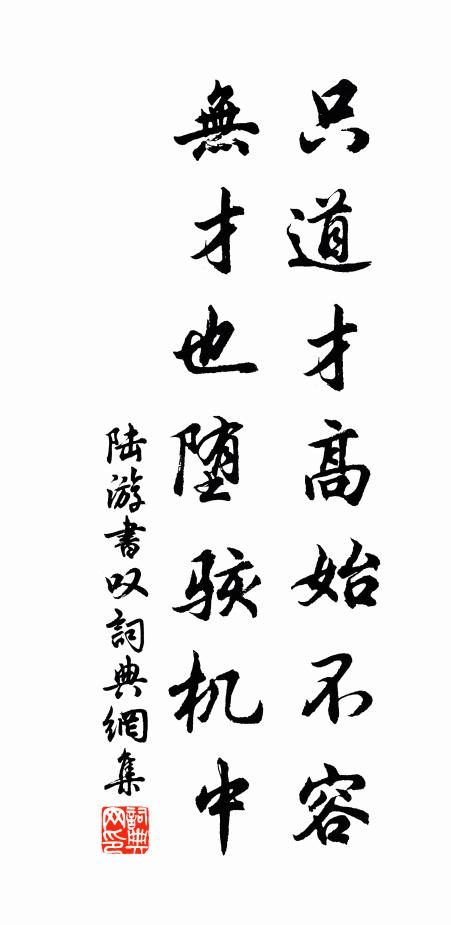 只道才高始不容
無才也堕骇机中
陆游書叹詞典網集
詞典网印